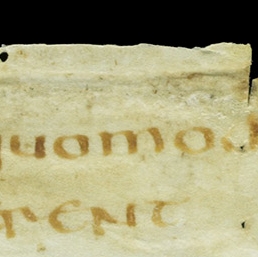 quomod
rent